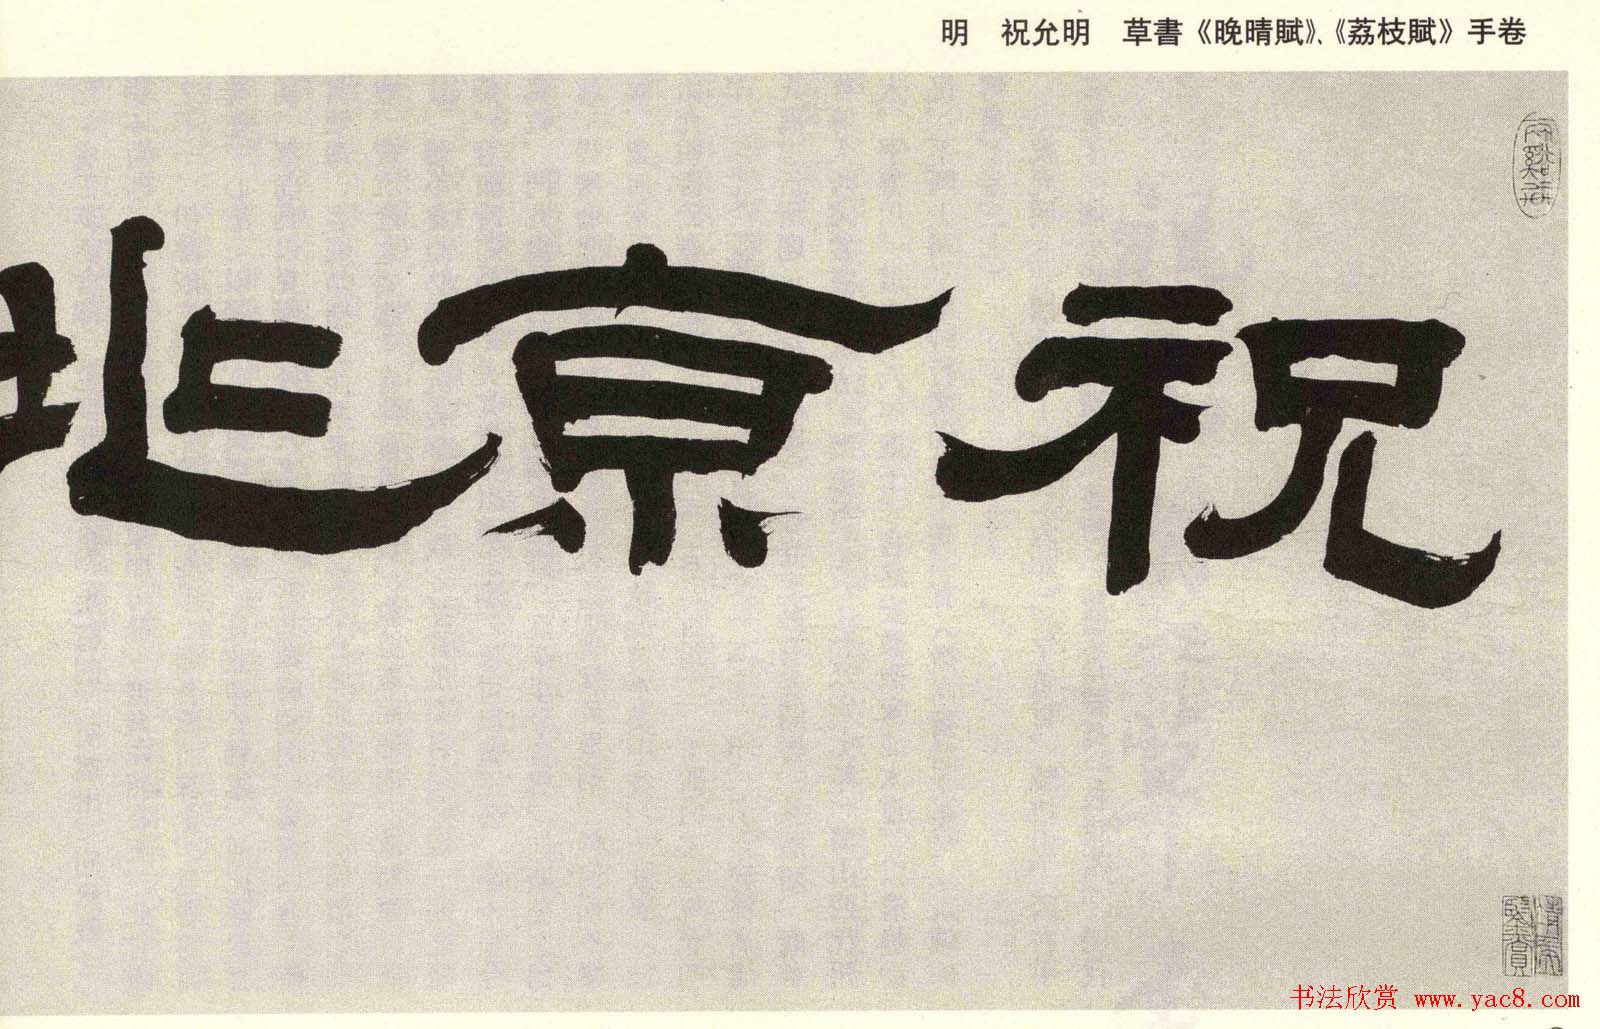 明　祝允明　草書《晚晴賦》、《荔枝賦》手卷
祝京兆
书法欣赏 www.yac8.com